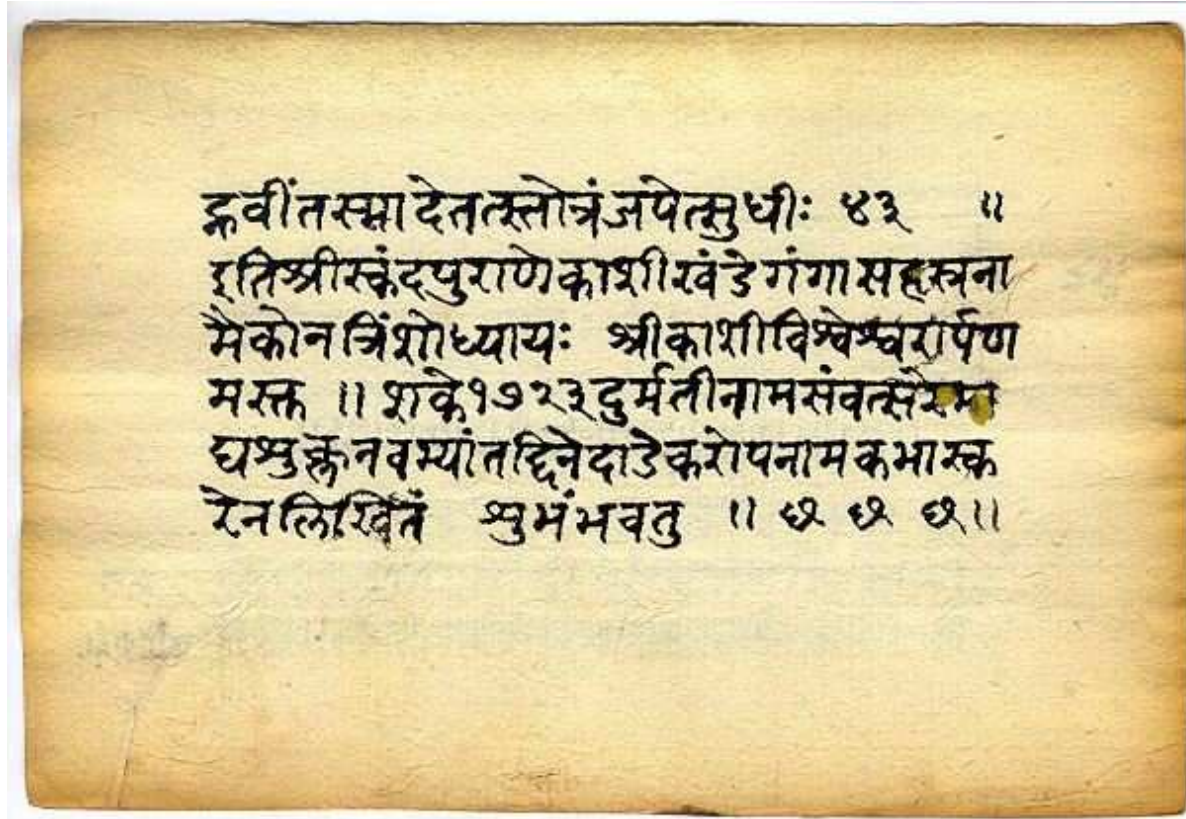 ह्नवींतस्मादेतत्स्तोत्रंजपेत्सुधीः ४३ ॥
इतिश्रीस्कंदपुराणेकाशीखंडेगंगासहस्त्रना
मैकोनत्रिंशोध्यायः श्रीकाशीविश्वेश्वरार्पण
मस्त ॥ शके१७२३दुर्मतीनामसंवत्सरेमा
घशुक्लनवम्यांतद्दिनेदाडेकरोपनामकभास्क
रेनलिखितं शुभंभवतु ॥ छ छ छ॥